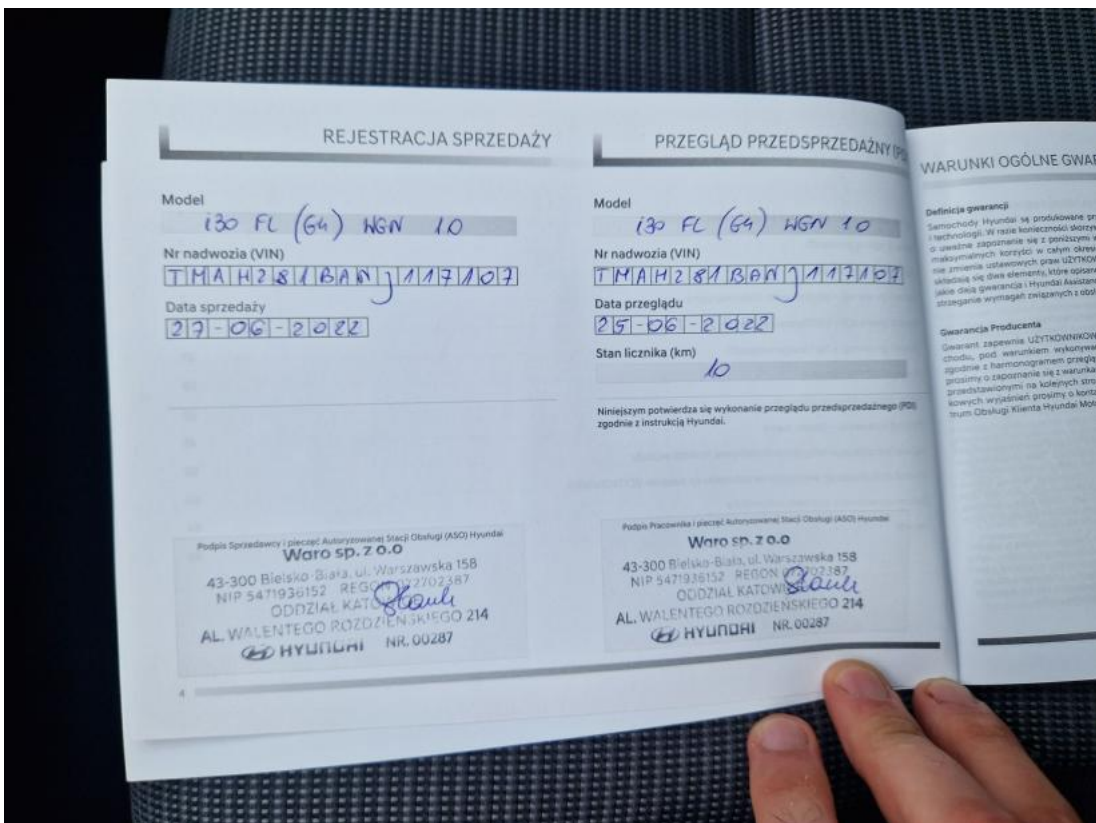 REJESTRACJA SPRZEDAŻY
Model
i30 FL (G4) WGN 10
Nr nadwozia (VIN)
TMAH281BANJ117107
Data sprzedaży
27-06-2022
Podpis Sprzedawcy i pieczęć Autoryzowanej Stacji Obsługi (ASO) Hyundai
Waro sp. z o.o
43-300 Bielsko-Biała, ul. Warszawska 158
NIP 5471936152 REGON 072702387
ODDZIAŁ KATO
AL. WALENTEGO ROŹDZIEŃSKIEGO 214
HYUNDAI NR. 00287
4
PRZEGLĄD PRZEDSPRZEDAŻNY (PD
Model
i30 FL (G4) WGN 10
Nr nadwozia (VIN)
TMAH281BANJ117107
Data przeglądu
25-06-2022
Stan licznika (km)
10
Niniejszym potwierdza się wykonanie przeglądu przedsprzedażnego (PDI)
zgodnie z instrukcją Hyundai.
Podpis Pracownika i pieczęć Autoryzowanej Stacji Obsługi (ASO) Hyundai
Waro sp. z o.o
43-300 Bielsko-Biała, ul. Warszawska 158
NIP 5471936152 REGON 072702387
ODDZIAŁ KATOWI
AL. WALENTEGO ROŹDZIEŃSKIEGO 214
HYUNDAI NR. 00287
WARUNKI OGÓLNE GWAR
Definicja gwarancji
Samochody Hyundai są produkowane
i technologii. W razie konieczności
o uważne zapoznanie się z poniższymi
maksymalnych korzyści w całym
nie zmienia ustawowych praw
składają się dwa elementy, które
jakie dają gwarancja i Hyundai
strzeganie wymagań związanych z
Gwarancja Producenta
Gwarant zapewnia UŻYTKOWNIKOW
chodu, pod warunkiem
zgodnie z harmonogramem
prosimy o zapoznanie się z
przedstawionymi na kolejnych
kowych wyjaśnień prosimy o
trum Obsługi Klienta Hyundai